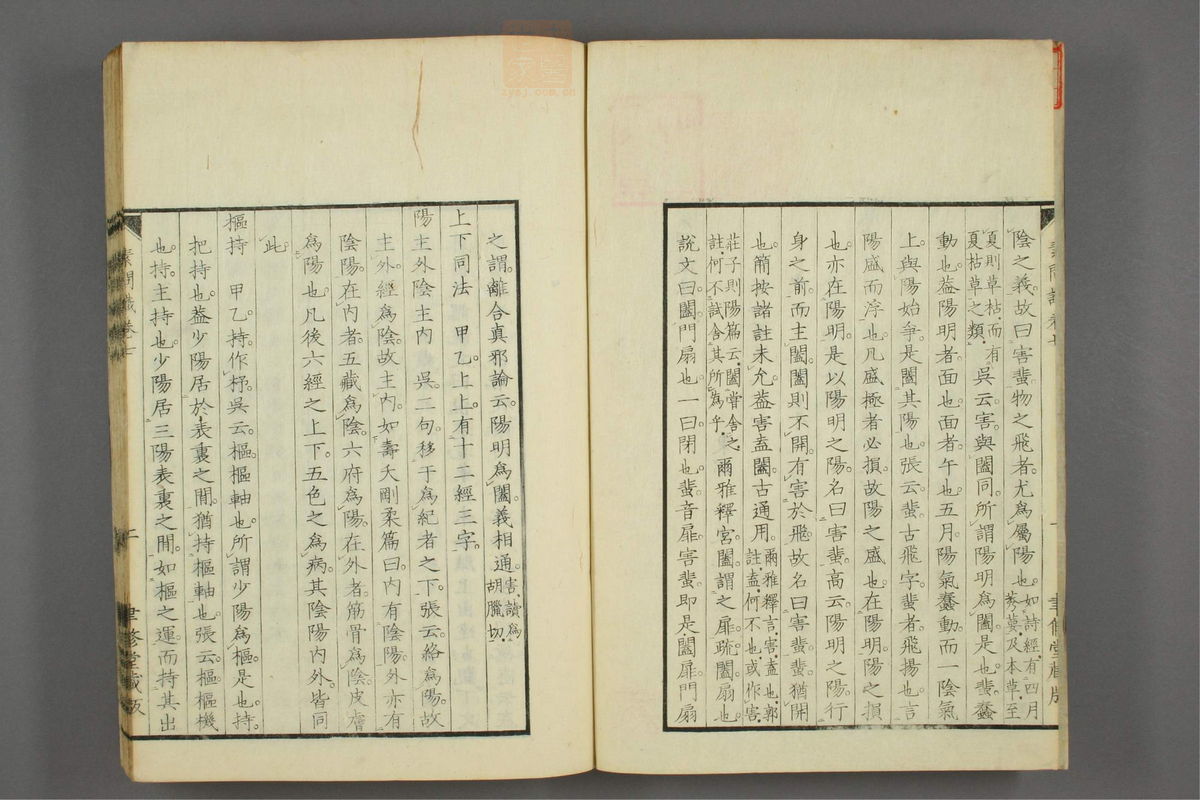 陰之義故曰害蜚物之飛者尤爲屬陽也如詩經有四月
秀葽及本草至
夏則草枯而有
夏枯草之類吳云害與闔同所謂陽明爲闔是也蜚蠢
動也蓋陽明者面也面者午也五月陽氣蠢動而一陰氣
上與陽始爭是闔其陽也張云蜚古飛字蜚者飛揚也言
陽盛而浮也凡盛極者必損故陽之盛也在陽明陽之損
也亦在陽明是以陽明之陽名曰害蜚高云陽明之陽行
身之前而主闔闔則不開有害於飛故名曰害蜚蜚猶開
也簡按諸註未允蓋害盍闔古通用爾雅釋言害盍也郭
註盍何不也或作害
莊子則陽篇云闔嘗舍之
註何不試舍其所爲乎爾雅釋宮闔謂之扉疏闔扇也
說文曰闔門扇也一曰閉也蜚音扉害蜚即是闔扉門扇
素問識卷七
聿修堂藏版
之謂離合眞邪論云陽明爲闔義相通害讀爲
胡臘切
上下同法 甲乙上上有十二經三字
陽主外陰主內 吳二句移于爲紀者之下張云絡爲陽故
主外經爲陰故主內如壽夭剛柔篇曰內有陰陽外亦有
陰陽在內者五藏爲陰六府爲陽在外者筋骨爲陰皮膚
爲陽也凡後六經之上下五色之爲病其陰陽內外皆同
此
樞持 甲乙持作杼吳云樞樞軸也所謂少陽爲樞是也持
把持也蓋少陽居於表裏之間猶持樞軸也張云樞樞機
也持主持也少陽居三陽表裏之間如樞之運而持其出
素問識卷七
聿修堂藏版